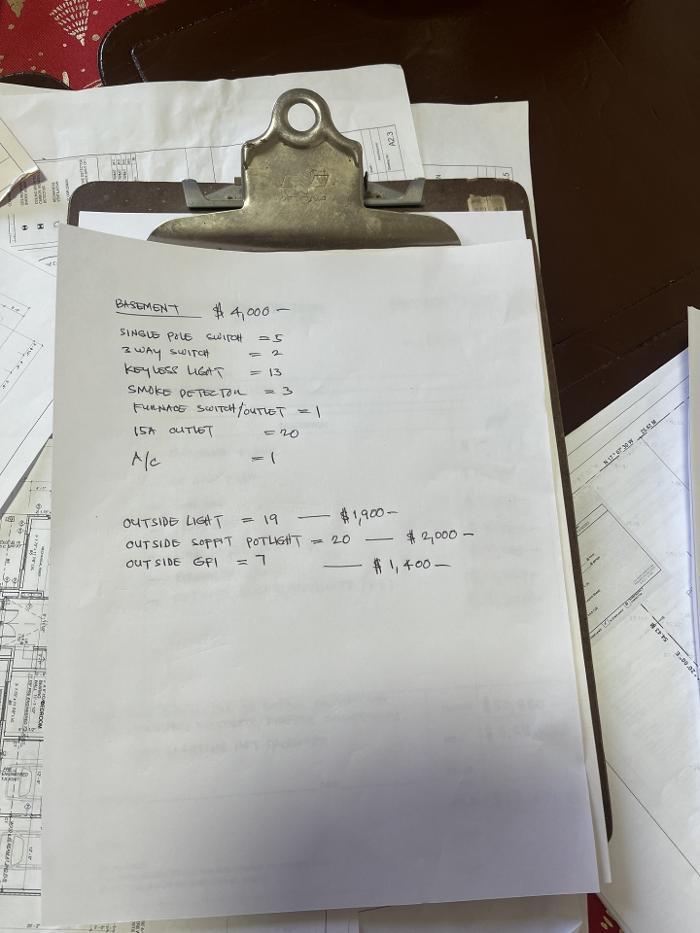 A2.3
BASEMENT $4,000 —
SINGLE POLE SWITCH = 5
3 WAY SWITCH = 2
KEYLESS LIGHT = 13
SMOKE DETECTOR = 3
FURNACE SWITCH/OUTLET = 1
15A OUTLET = 20
A/C = 1
OUTSIDE LIGHT = 19 — $1,900 —
OUTSIDE SOFFIT POTLIGHT = 20 — $2,000 —
OUTSIDE GFI = 7 — $1,400 —